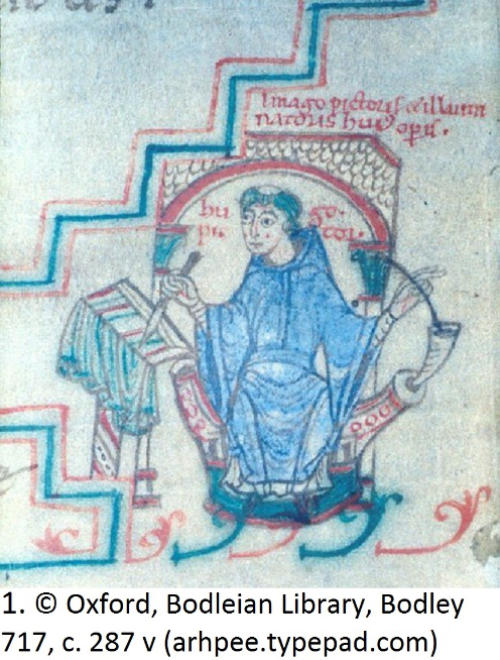 Imago pictoris & illumi
natoris huiꝰ opis.
hu go.
pic tor.
1. © Oxford, Bodleian Library, Bodley
717, c. 287 v (arhpee.typepad.com)